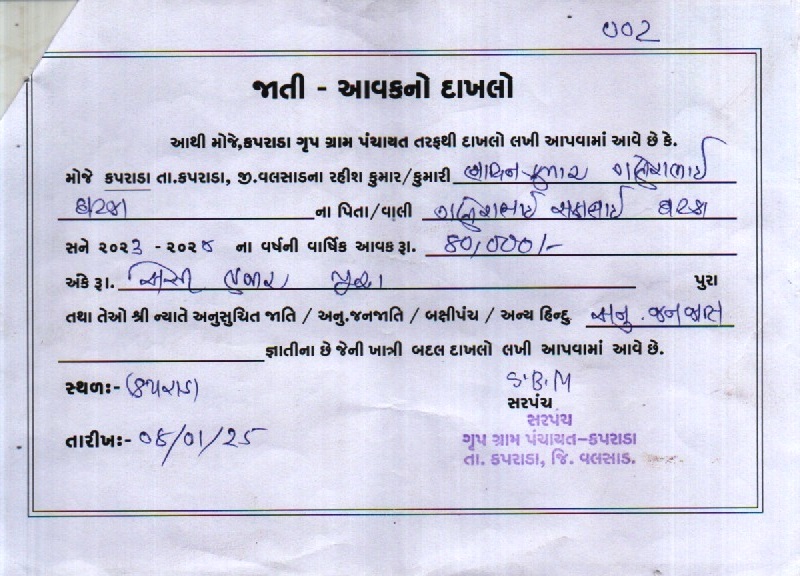 002
જાતી - આવકનો દાખલો
આથી મોજે,કપરાડા ગૃપ ગ્રામ પંચાયત તરફથી દાખલો લખી આપવામાં આવે છે કે.
મોજે કપરાડા તા.કપરાડા, જી.વલસાડના રહીશ કુમાર/કુમારી
ના પિતા/વાલી
સને ૨૦૨૩ - ૨૦૨૪ ના વર્ષની વાર્ષિક આવક રૂા. ૮૦,૦૦૦/-
અંકે રૂા. એસી હજાર પુરા પુરા
તથા તેઓ શ્રી ન્યાતે અનુસુચિત જાતિ / અનુ.જનજાતિ / બક્ષીપંચ / અન્ય હિન્દુ અનુ.જનજાતિ
જ્ઞાતીના છે જેની ખાત્રી બદલ દાખલો લખી આપવામાં આવે છે.
સ્થળઃ- કપરાડા
S.B.M
સરપંચ
સરપંચ
તારીખઃ- 08/01/25
ગૃપ ગ્રામ પંચાયત-કપરાડા
તા. કપરાડા, જિ. વલસાડ.